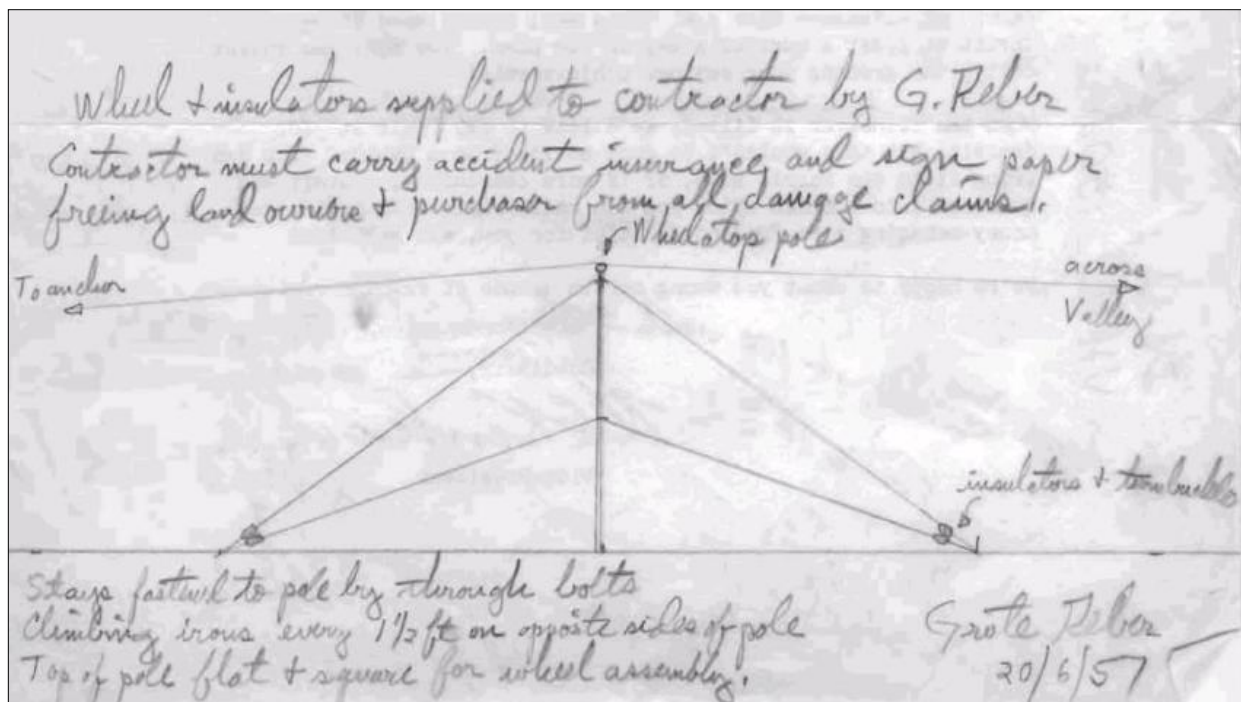 Wheel & insulators supplied to contractor by G. Reber
Contractor must carry accident insurance and sign paper
freeing land owners & purchaser from all damage claims.
Wheel atop pole
To anchor
across
Valley
insulators & turnbuckles
Stays fastned to pole by through bolts
Climbing irons every 1 1/2 ft on opposite sides of pole
Top of pole flat & square for wheel assembly.
Grote Reber
20/6/57